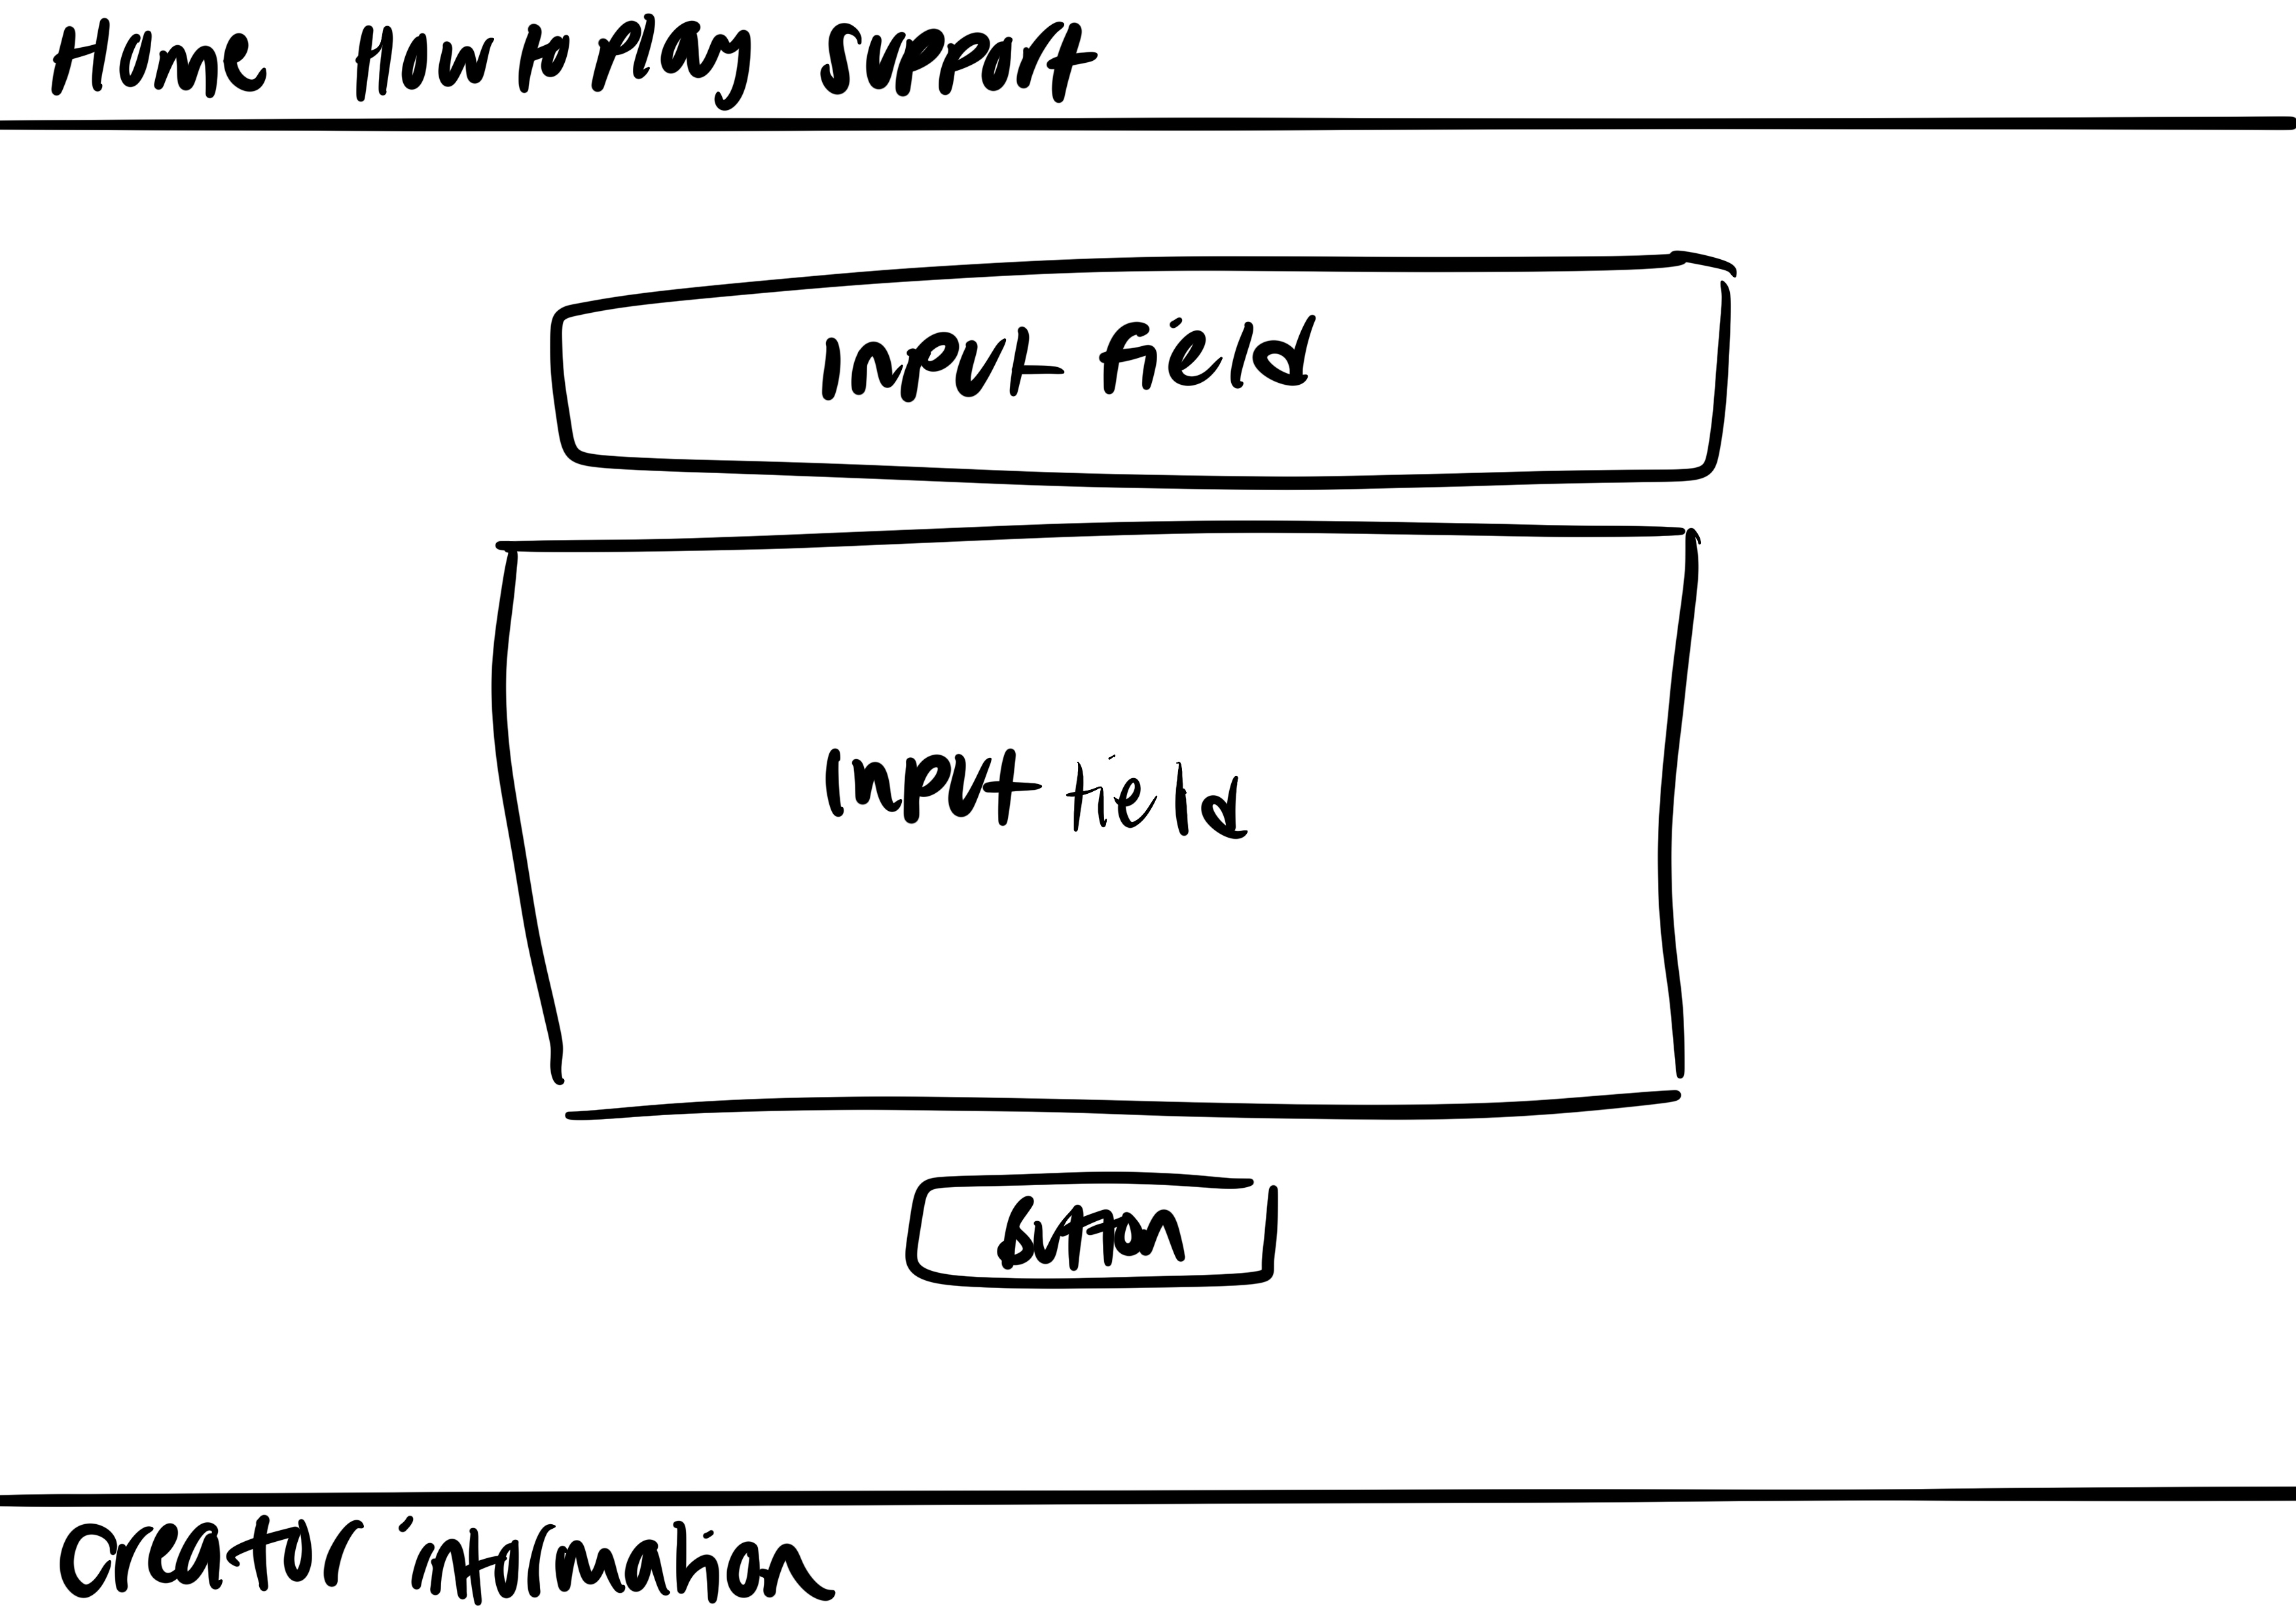 Home How to Play Support
Input field
Input field
Button
Creator information